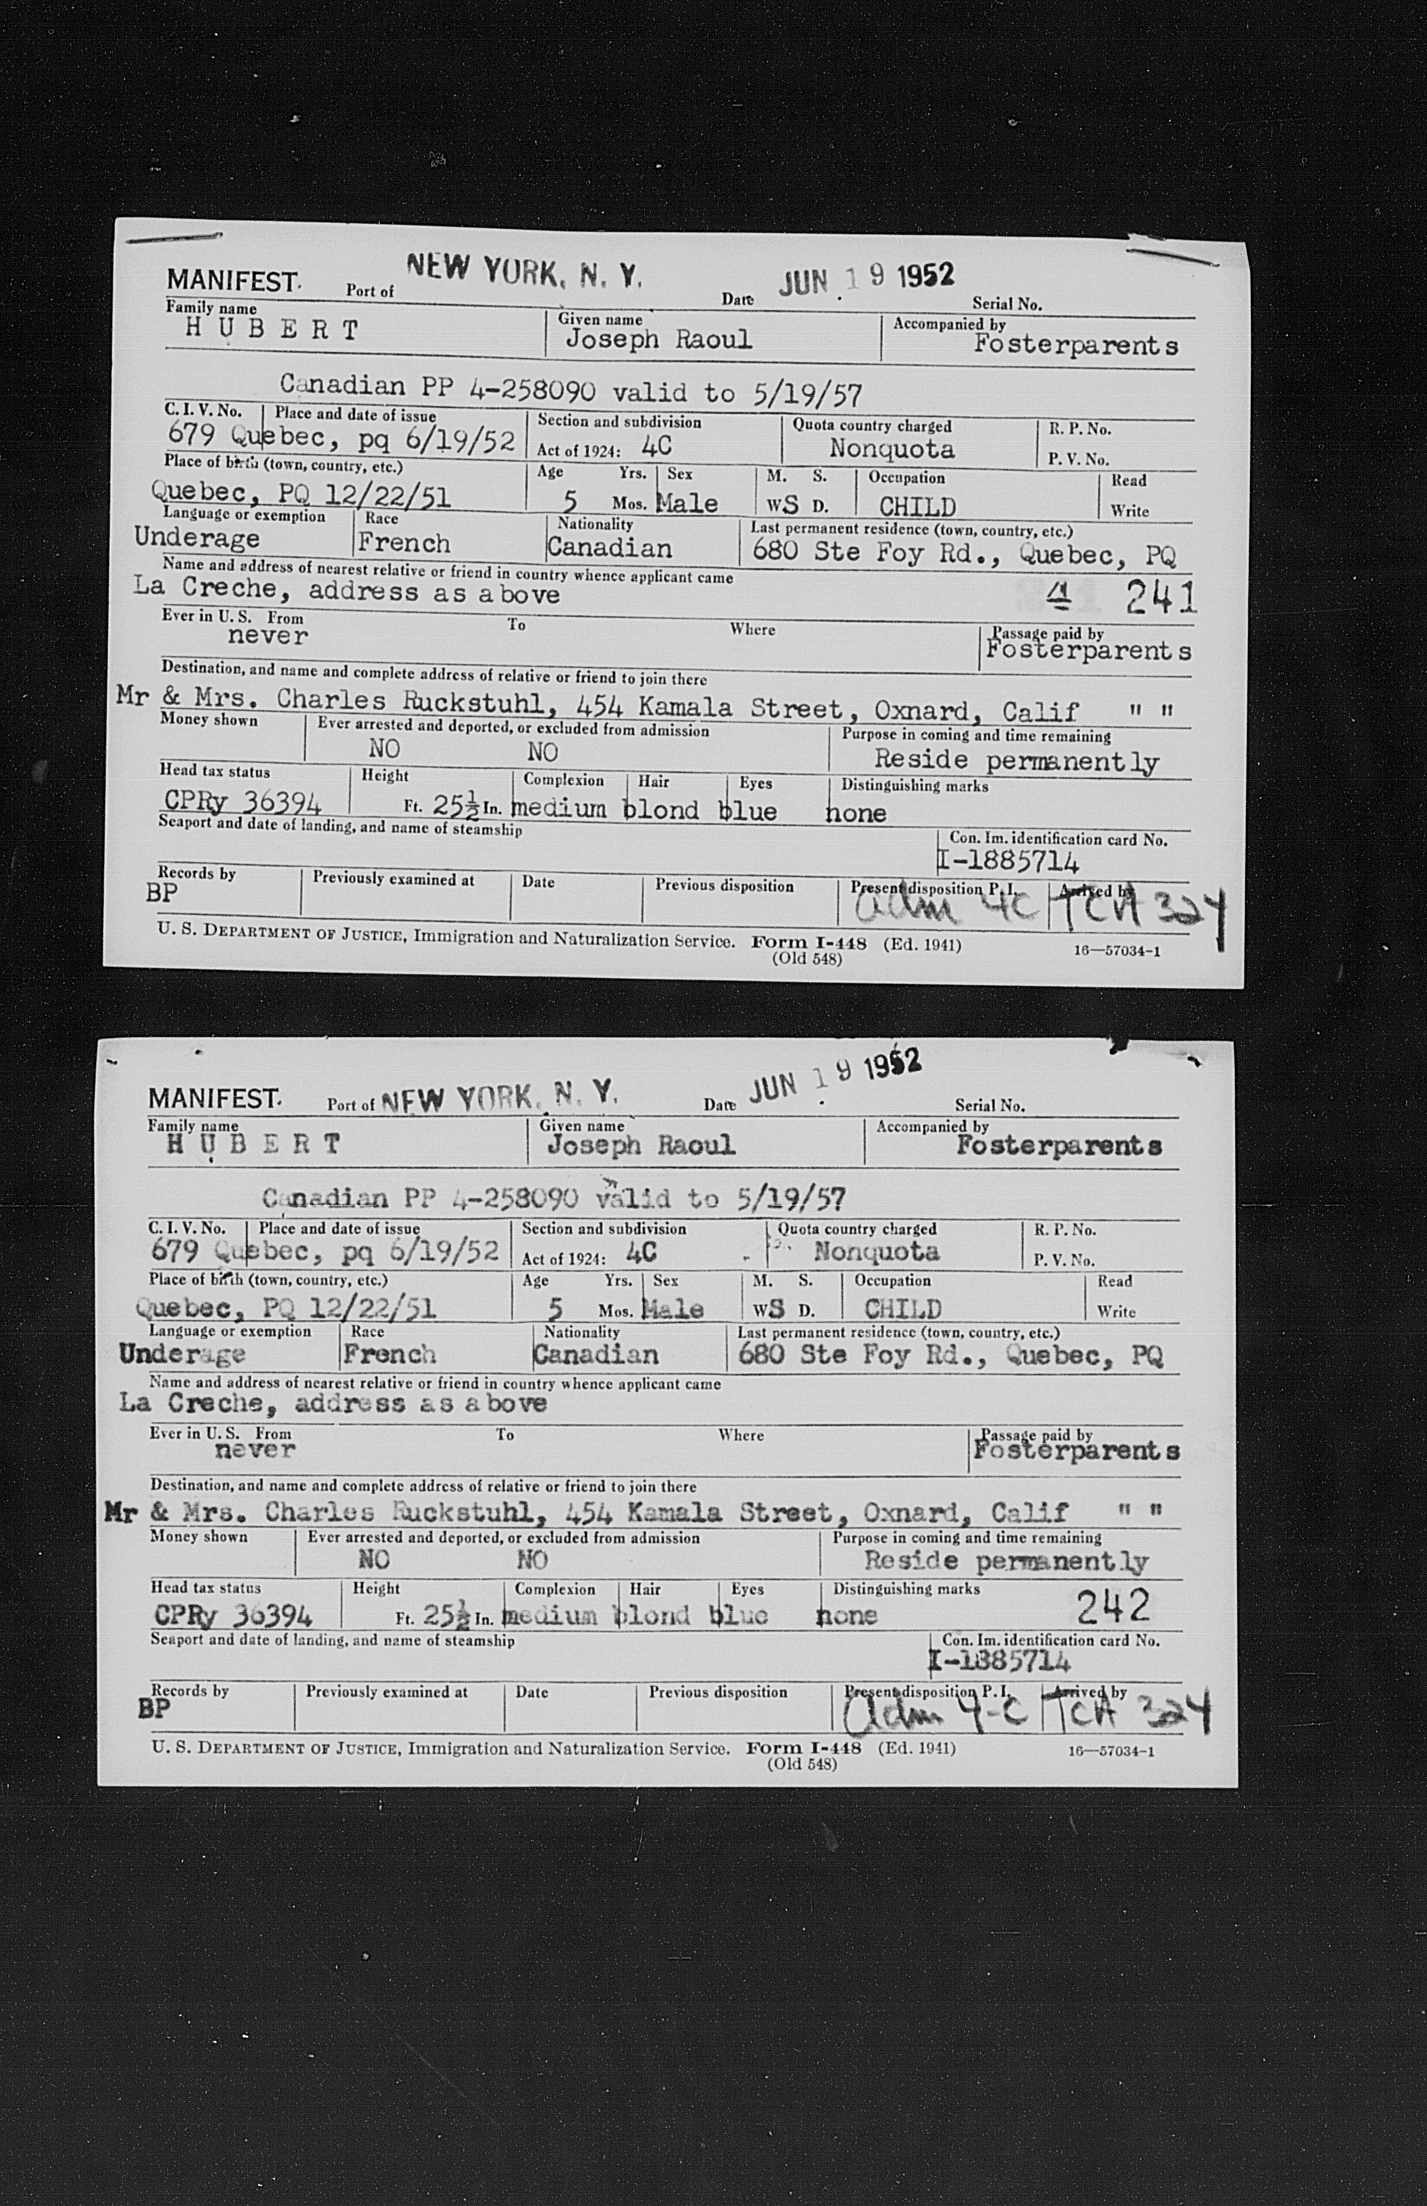 MANIFEST. Port of NEW YORK, N. Y. Date JUN 19 1952 Serial No.
Family name Given name Accompanied by
H U B E R T Joseph Raoul Fosterparents
Canadian PP 4-258090 valid to 5/19/57
C. I. V. No. Place and date of issue Section and subdivision Quota country charged R. P. No.
679 Quebec, pq 6/19/52 Act of 1924: 4C Nonquota P. V. No.
Place of birth (town, country, etc.) Age Yrs. Sex M. S. Occupation Read
Quebec, PQ 12/22/51 5 Mos. Male WS D. CHILD Write
Language or exemption Race Nationality Last permanent residence (town, country, etc.)
Underage French Canadian 680 Ste Foy Rd., Quebec, PQ
Name and address of nearest relative or friend in country whence applicant came
La Creche, address as above 4 241
Ever in U. S. From To Where Passage paid by
never Fosterparents
Destination, and name and complete address of relative or friend to join there
Mr & Mrs. Charles Ruckstuhl, 454 Kamala Street, Oxnard, Calif " "
Money shown Ever arrested and deported, or excluded from admission Purpose in coming and time remaining
NO NO Reside permanently
Head tax status Height Complexion Hair Eyes Distinguishing marks
CPRy 36394 Ft. 25½ In. medium blond blue none
Seaport and date of landing, and name of steamship Con. Im. identification card No.
I-1885714
Records by Previously examined at Date Previous disposition Present disposition P. I. Arrived by
BP adm 4C TCA 324
U. S. DEPARTMENT OF JUSTICE, Immigration and Naturalization Service. Form I-448 (Ed. 1941) 16—57034-1
(Old 548)
MANIFEST. Port of NEW YORK, N. Y. Date JUN 19 1952 Serial No.
Family name Given name Accompanied by
H U B E R T Joseph Raoul Fosterparents
Canadian PP 4-258090 valid to 5/19/57
C. I. V. No. Place and date of issue Section and subdivision Quota country charged R. P. No.
679 Quebec, pq 6/19/52 Act of 1924: 4C Nonquota P. V. No.
Place of birth (town, country, etc.) Age Yrs. Sex M. S. Occupation Read
Quebec, PQ 12/22/51 5 Mos. Male WS D. CHILD Write
Language or exemption Race Nationality Last permanent residence (town, country, etc.)
Underage French Canadian 680 Ste Foy Rd., Quebec, PQ
Name and address of nearest relative or friend in country whence applicant came
La Creche, address as above
Ever in U. S. From To Where Passage paid by
never Fosterparents
Destination, and name and complete address of relative or friend to join there
Mr & Mrs. Charles Ruckstuhl, 454 Kamala Street, Oxnard, Calif " "
Money shown Ever arrested and deported, or excluded from admission Purpose in coming and time remaining
NO NO Reside permanently
Head tax status Height Complexion Hair Eyes Distinguishing marks
CPRy 36394 Ft. 25½ In. medium blond blue none 242
Seaport and date of landing, and name of steamship Con. Im. identification card No.
I-1885714
Records by Previously examined at Date Previous disposition Present disposition P. I. Arrived by
BP adm 4-C TCA 324
U. S. DEPARTMENT OF JUSTICE, Immigration and Naturalization Service. Form I-448 (Ed. 1941) 16—57034-1
(Old 548)